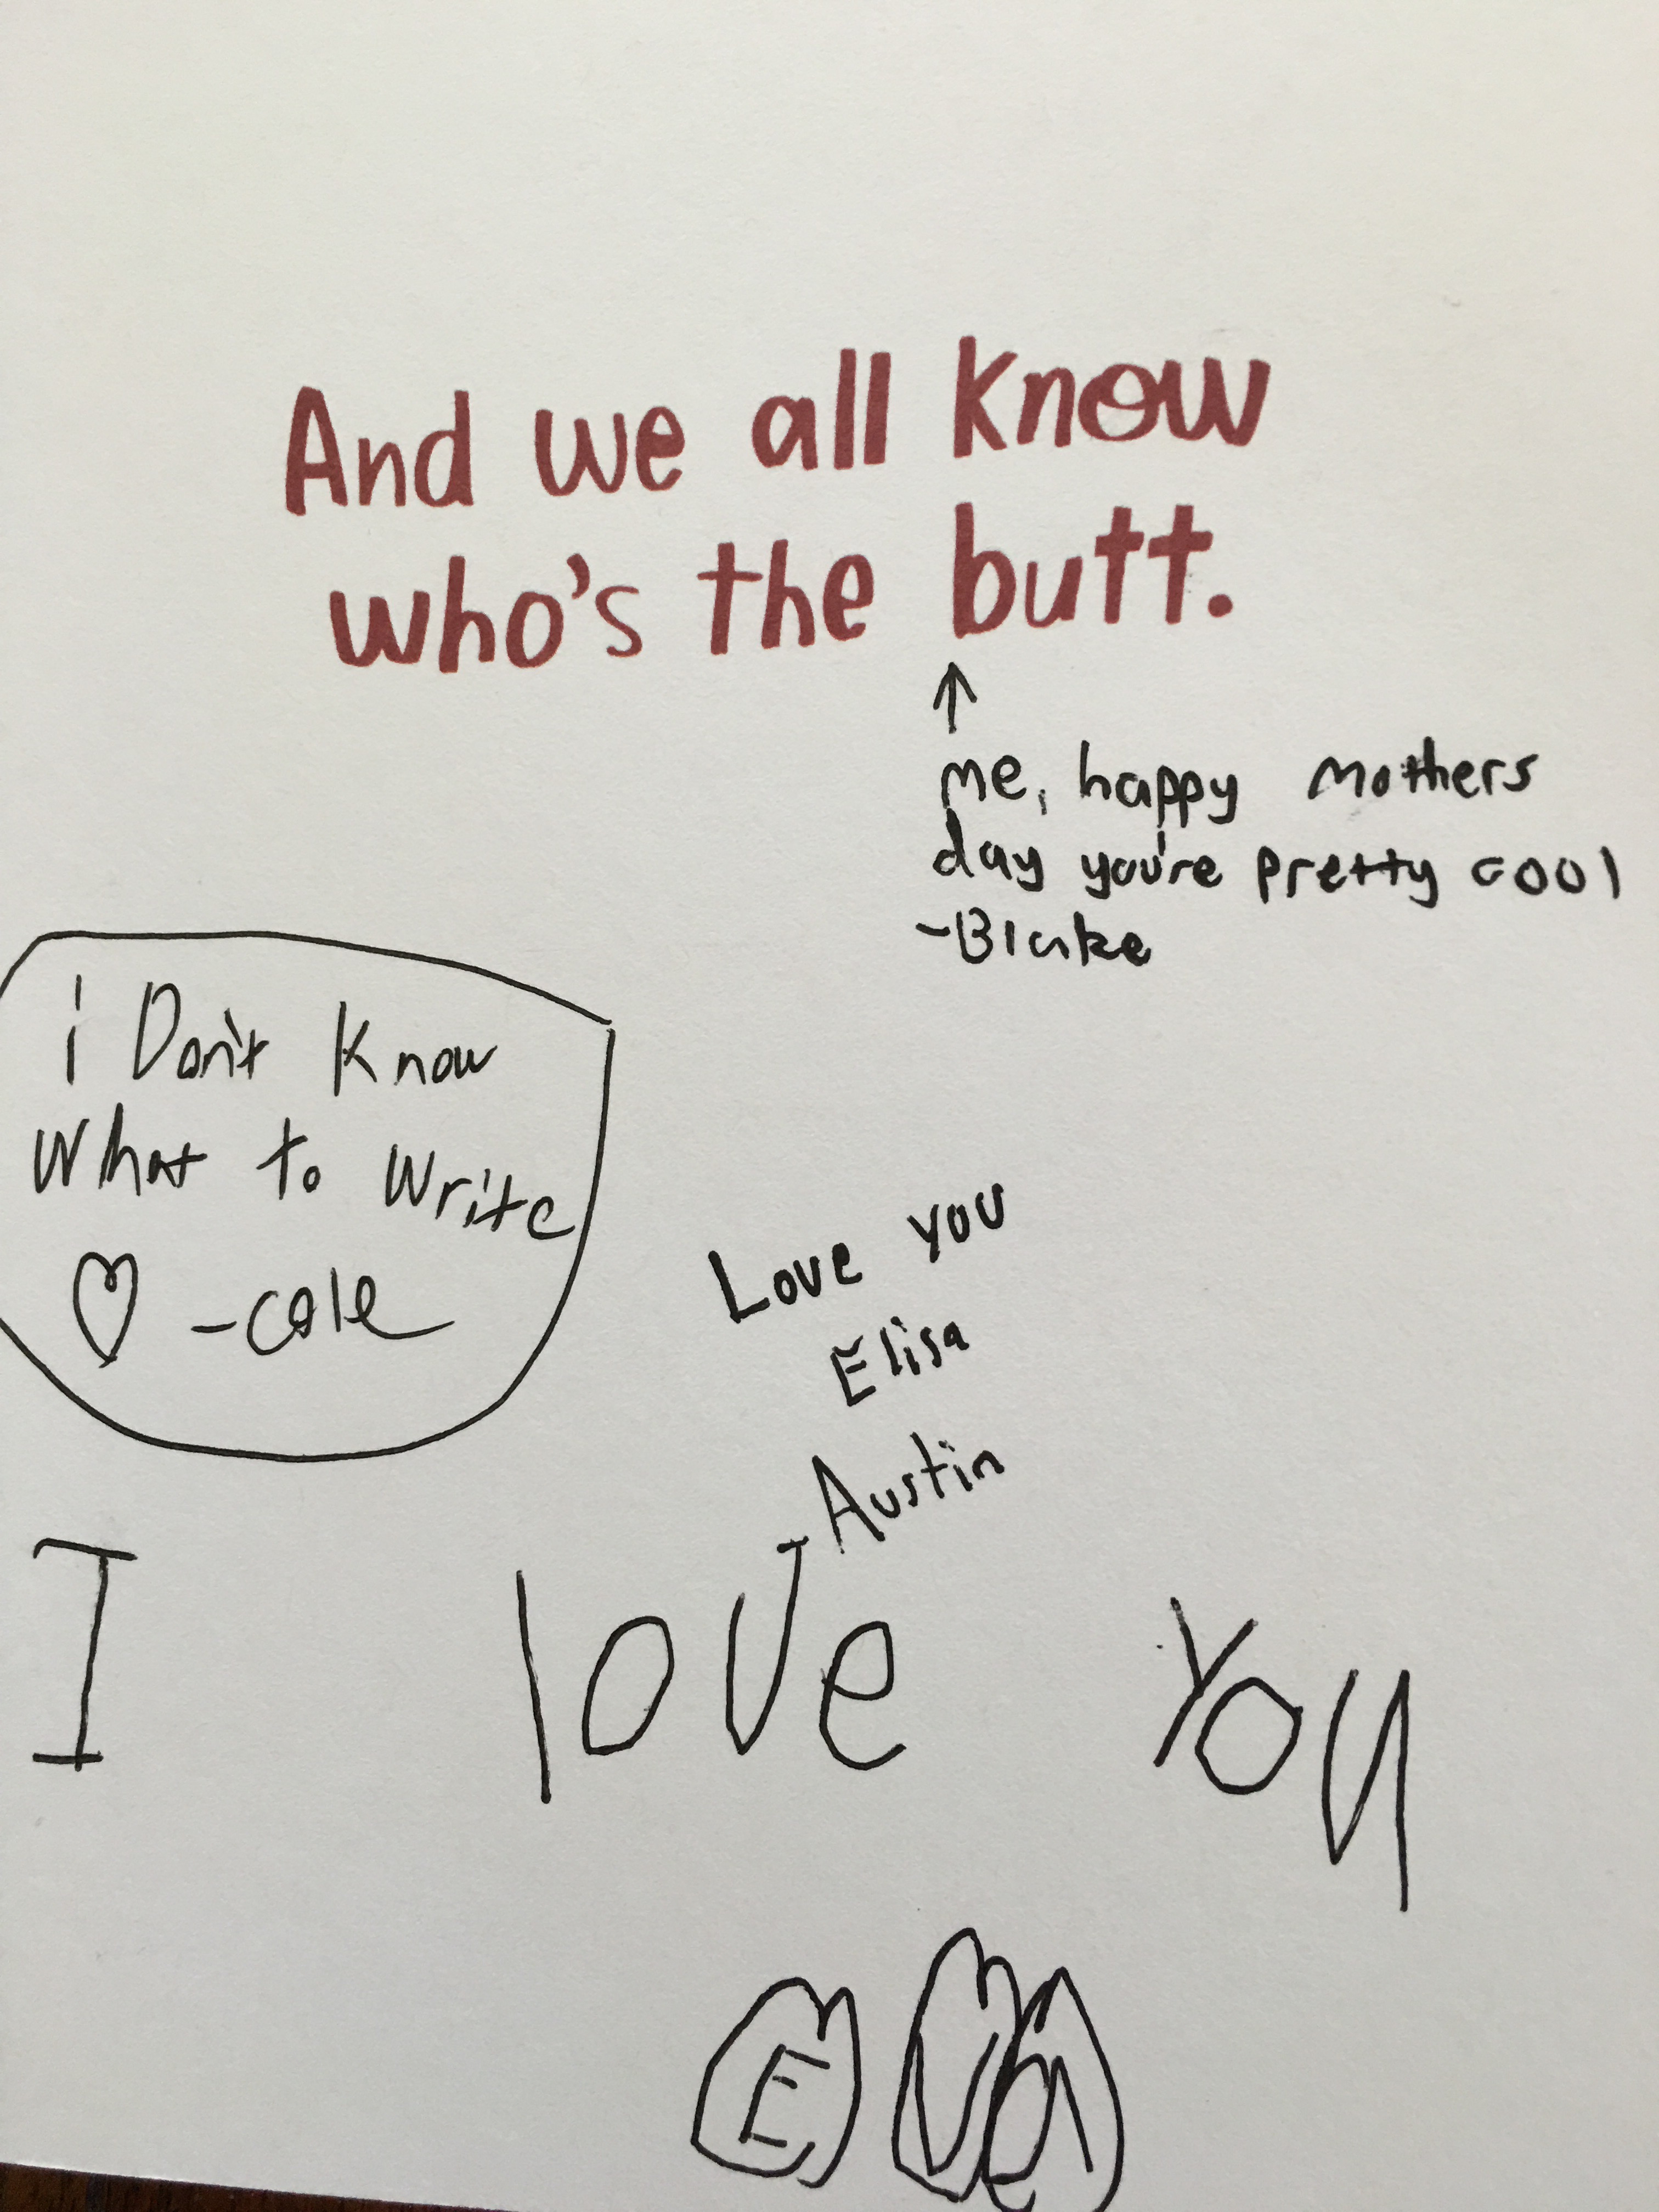 And we all know
who's the butt.
↑
me, happy mothers
day you're pretty cool
-Blake
i Don't Know
What to Write
♡ -cole
Love you
Elisa
Austin
I love you
Eva